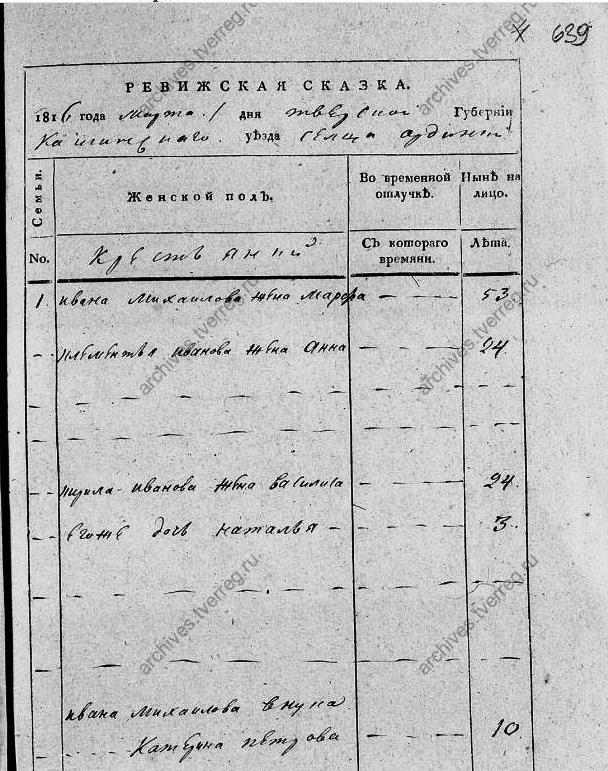 639
РЕВИЖСКАЯ СКАЗКА.
1816 года марта 1 дня тверской Губернiи
Кашинскаго уѣзда селца
Семьи.
Женской полъ.
Во временной отлучкѣ.
Нынѣ на лицо.
No.
Крестьянки
Съ котораго времяни.
Лѣта.
1. ивана михаилова жена марфа — 53
климентья иванова жена анна 24
кирила иванова жена василиса — 24
егоже дочь наталья — 3
ивана михаилова внука
Катерина петрова — 10
archives.tverreg.ru
archives.tverreg.ru
archives.tverreg.ru
archives.tverreg.ru
archives.tverreg.ru
archives.tverreg.ru